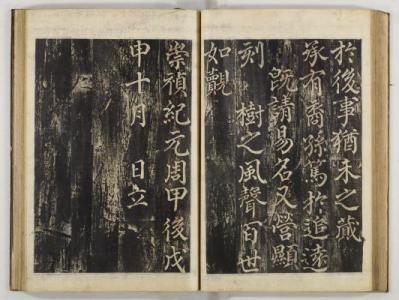 於後事猶未之蕆
承有裔孫篤於追遠
既請易名又營顯
刻樹之風聲百世
如覿
崇禎紀元周甲後戊
申十月日立